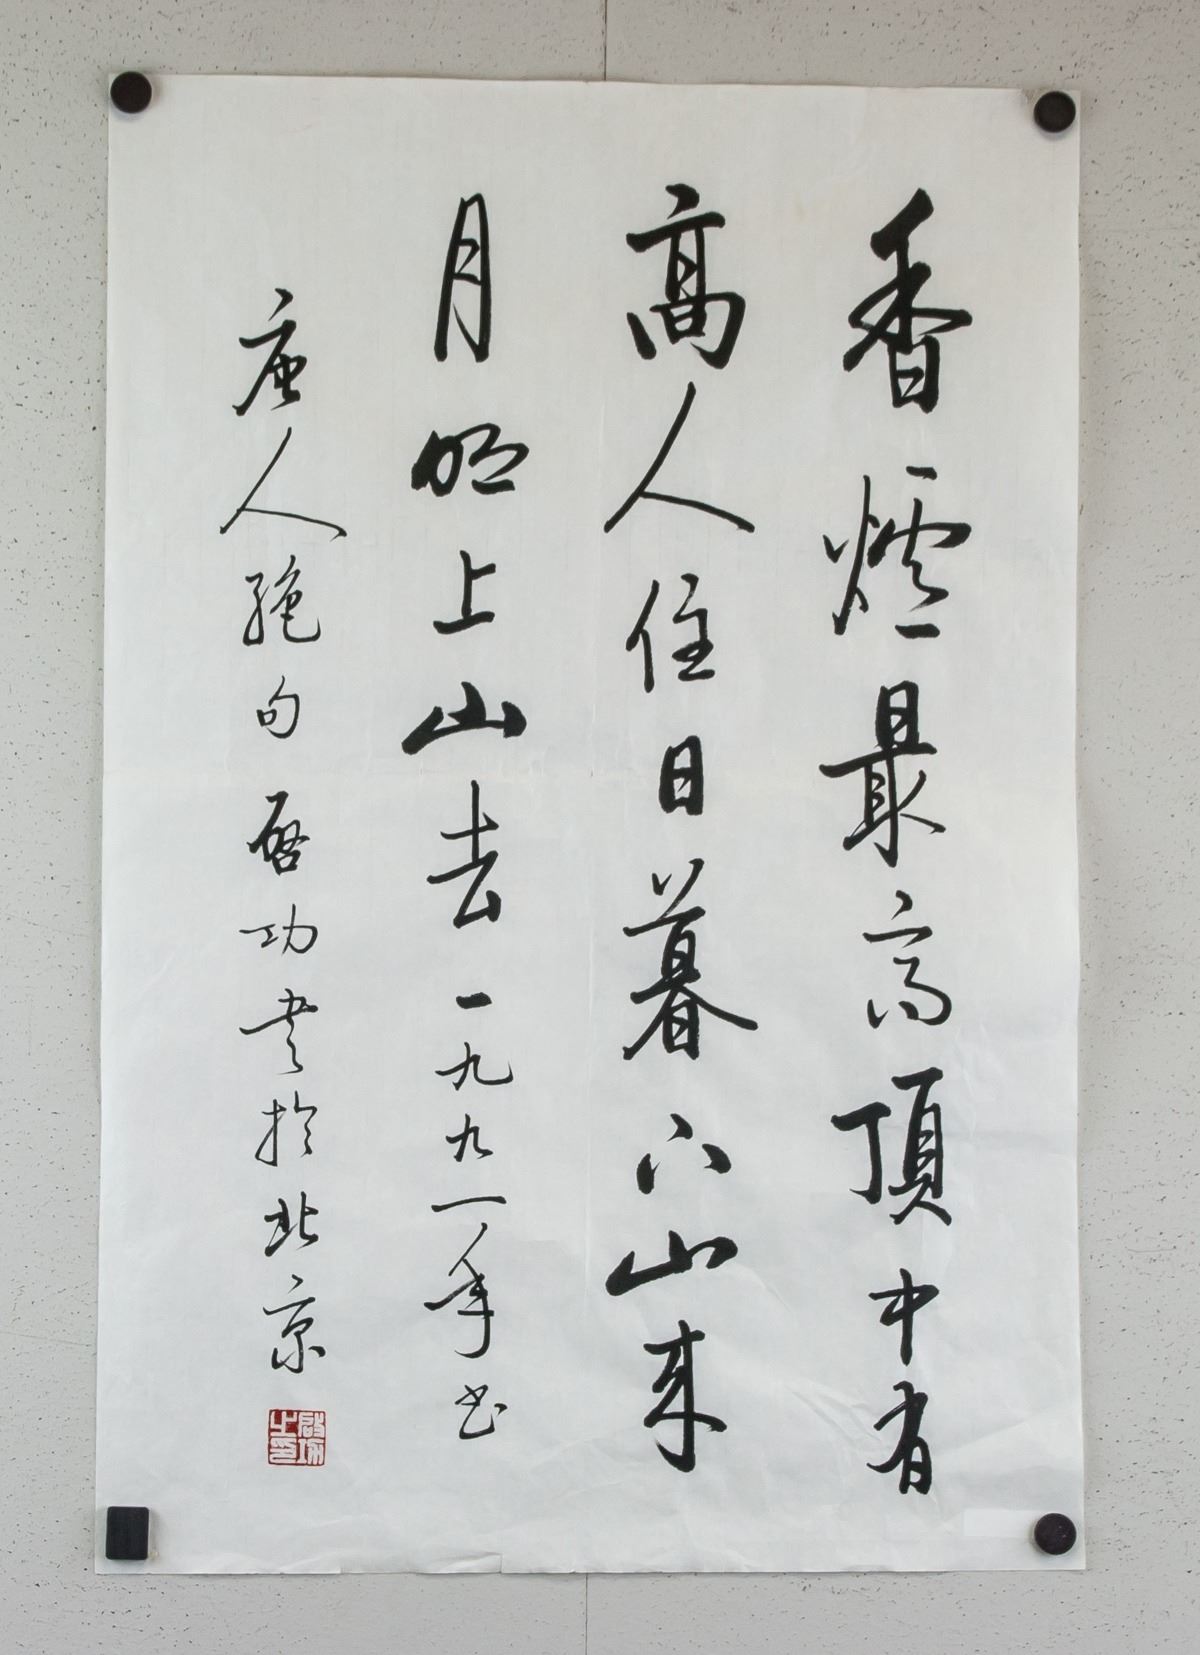 香爐最高頂中有
高人住日暮下山來
月明上山去一九九一年書
唐人絶句啓功書於北京
啟功之印